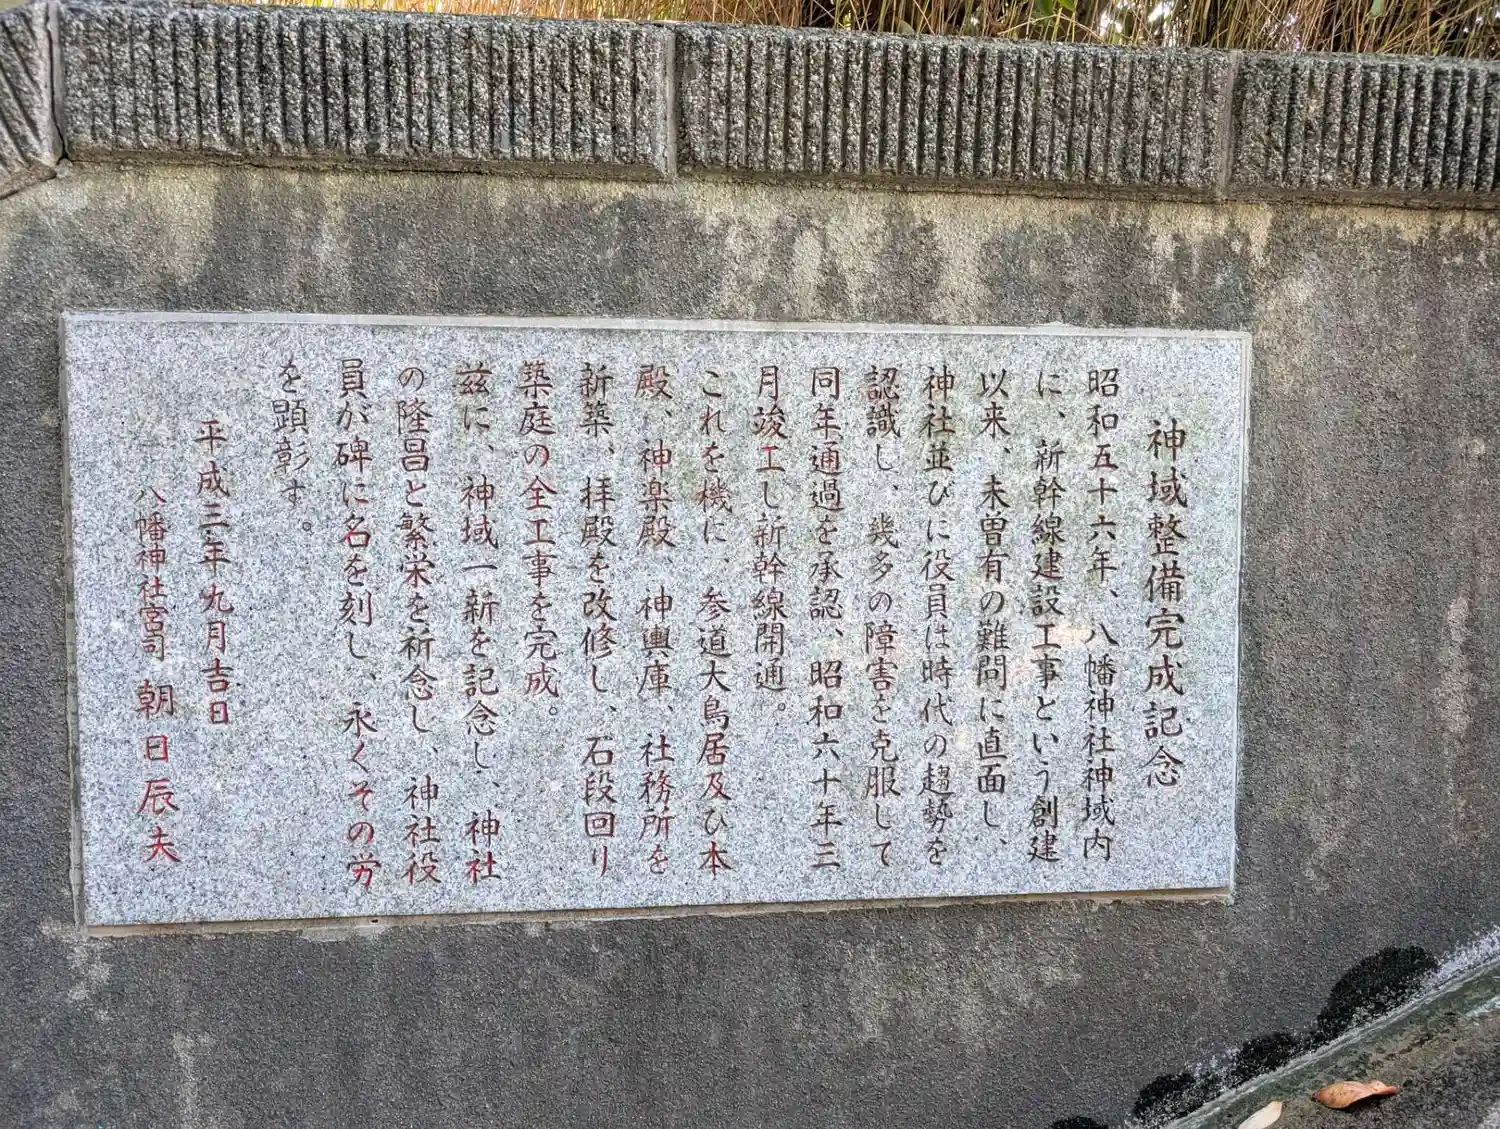 神域整備完成記念
昭和五十六年、八幡神社神域内
に、新幹線建設工事という創建
以来、未曽有の難問に直面し、
神社並びに役員は時代の趨勢を
認識し、幾多の障害を克服して
同年通過を承認、昭和六十年三
月竣工し新幹線開通。
これを機に、参道大鳥居及ひ本
殿、神楽殿、神輿庫、社務所を
新築、拝殿を改修し、石段回り
築庭の全工事を完成。
茲に、神域一新を記念し、神社
の隆昌と繁栄を祈念し、神社役
員が碑に名を刻し、永くその労
を顕彰す。
平成三年九月吉日
八幡神社宮司 朝日辰夫